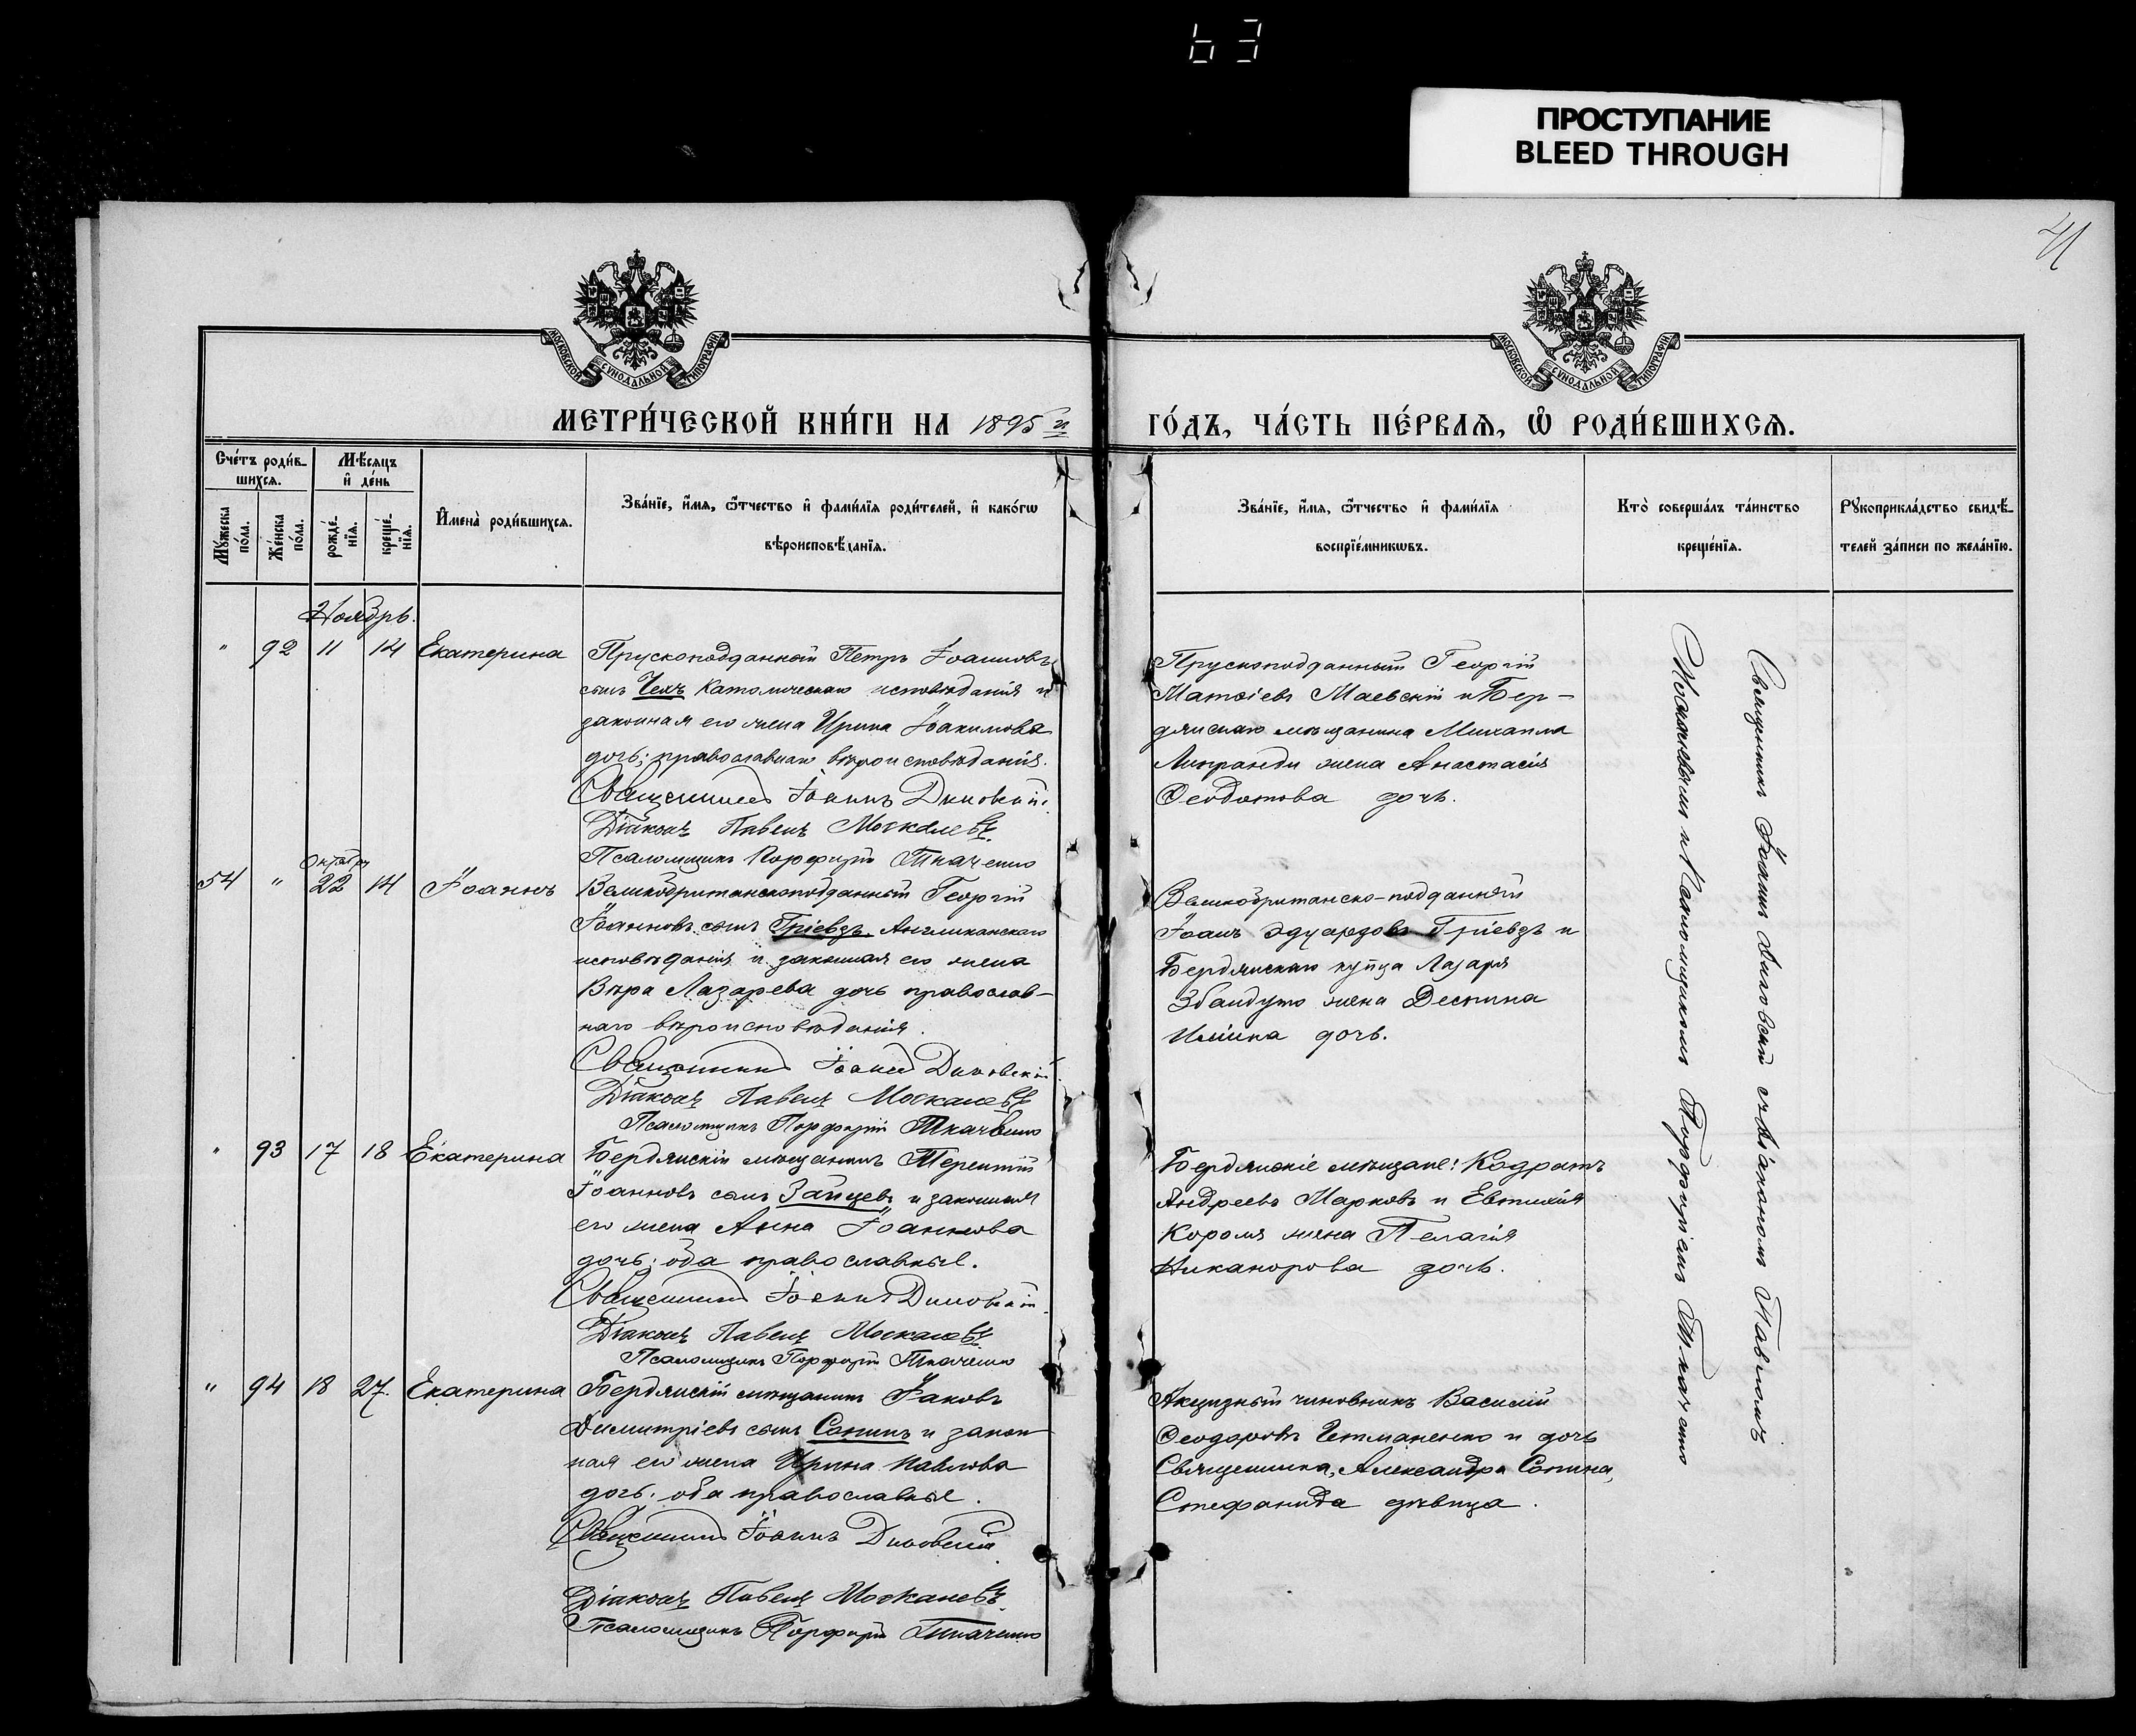 63
ПРОСТУПАНИЕ
BLEED THROUGH
41
МОСКОВСКОЙ СѴНОДАЛЬНОЙ ТИПОГРАФІИ
МОСКОВСКОЙ СѴНОДАЛЬНОЙ ТИПОГРАФІИ
МЕТРИ́ЧЕСКОЙ КНИ́ГИ НА 1895 й
ГО́ДЪ, ЧА́СТЬ ПЕ́РВАѦ, Ѡ РОДИ́ВШИХСѦ.
Сче́тъ роди́в-
шихсѧ.
Мѣ́сѧцъ
и де́нь
Мꙋ́жеска по́ла.
Же́нска по́ла.
рожде́-
нїѧ.
креще́-
нїѧ.
Имена̀ роди́вшихсѧ.
Зва́нїе, и́мѧ, ѻ́тчество и фами́лїѧ роди́телей, и како́гѡ
вѣроисповѣ́данїѧ.
Зва́нїе, и́мѧ, ѻ́тчество и фами́лїѧ
воспрїе́мникѡвъ.
Кто̀ соверша́лъ та́инство
креще́нїѧ.
Рꙋкоприкла́дство свидѣ́-
телей за́писи по жела́нїю.
Ноябрь.
" 92 11 14 Екатерина
Прускоподданный Петръ Іоанновъ
сынъ Чехъ Католическаго исповѣданія и
законная его жена Ирина Іоакимова
дочь; православнаго вѣроисповѣданія.
Священникъ Іоаннъ Диковскій.
Діаконъ Павелъ Москалевъ.
Псаломщикъ Порфирій Ткаченко
Прускоподданный Георгій
Матѳіевъ Маевскій и Бер-
дянскаго мѣщанина Михаила
Липранди жена Анастасія
Ѳеодотова дочь.
Октябрь
54 " 22 14 Іоаннъ
Великобританскоподданный Георгій
Іоанновъ сынъ Гріевзъ Англиканскаго
исповѣданія и законная его жена
Вѣра Лазарева дочь православ-
наго вѣроисповѣданія.
Священникъ Іоаннъ Диковскій
Діаконъ Павелъ Москалевъ
Псаломщикъ Порфирій Ткаченко
Великобританско-подданный
Іоанъ Эдуардовъ Гріевзъ и
Бердянскаго купца Лазаря
жена Деспина
Ильина дочь.
" 93 17 18 Екатерина
Бердянскій мѣщанинъ Терентій
Іоанновъ сынъ Зайцевъ и законная
его жена Анна Іоаннова
дочь; оба православные.
Священникъ Іоаннъ Диковскій.
Діаконъ Павелъ Москалевъ
Псаломщикъ Порфирій Ткаченко
Бердянскіе мѣщане: Кодратъ
Андреевъ Марковъ и Евтихія
Короля жена Пелагія
Никанорова дочь.
" 94 18 27. Екатерина
Бердянскій мѣщанинъ Іаковъ
Димитріевъ сынъ Сопинъ и закон
ная его жена Ирина Павлова
дочь; оба православные.
Священникъ Іоаннъ Диковскій.
Діаконъ Павелъ Москалевъ.
Псаломщикъ Порфирій Ткаченко
Акцизный чиновникъ Василій
Ѳеодоровъ Гетманенко и дочь
Священника, Александра Сопина,
Стефанида дѣвица.
Священникъ Іоаннъ Диковскій съ Діакономъ Павломъ
Москалевымъ и Псаломщикомъ Порфиріемъ Ткаченко